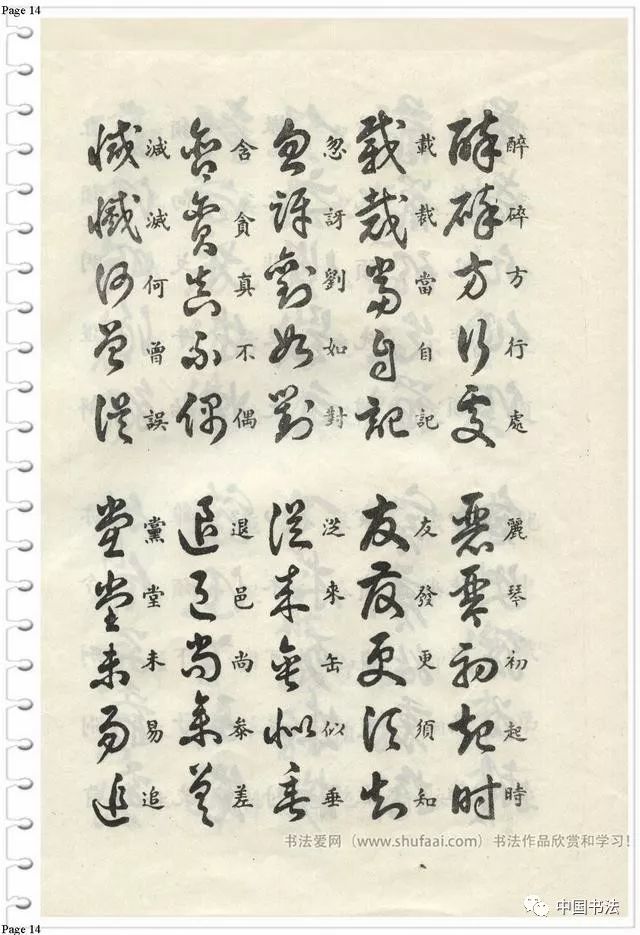 Page 14
醉碎方行處
麗琴初起時
載裁當自記
友發更須知
忽訝劉如對
從來缶似垂
含貪真不偶
退邑尚叅差
減滅何曾誤
黨堂未易追
书法爱网（www.shufaai.com）书法作品欣赏和学习！
中国书法
Page 14